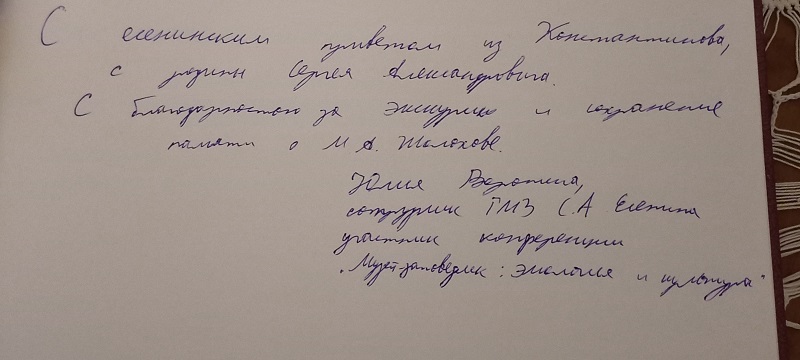 С есенинским приветом из Константинова,
с родины Сергея Александровича.
С благодарностью за экскурсию и сохранение
памяти о М.А. Шолохове.
Юлия Воронина,
сотрудник ГМЗ С.А Есенина
участник конференции
"Музей-заповедник: экология и культура"